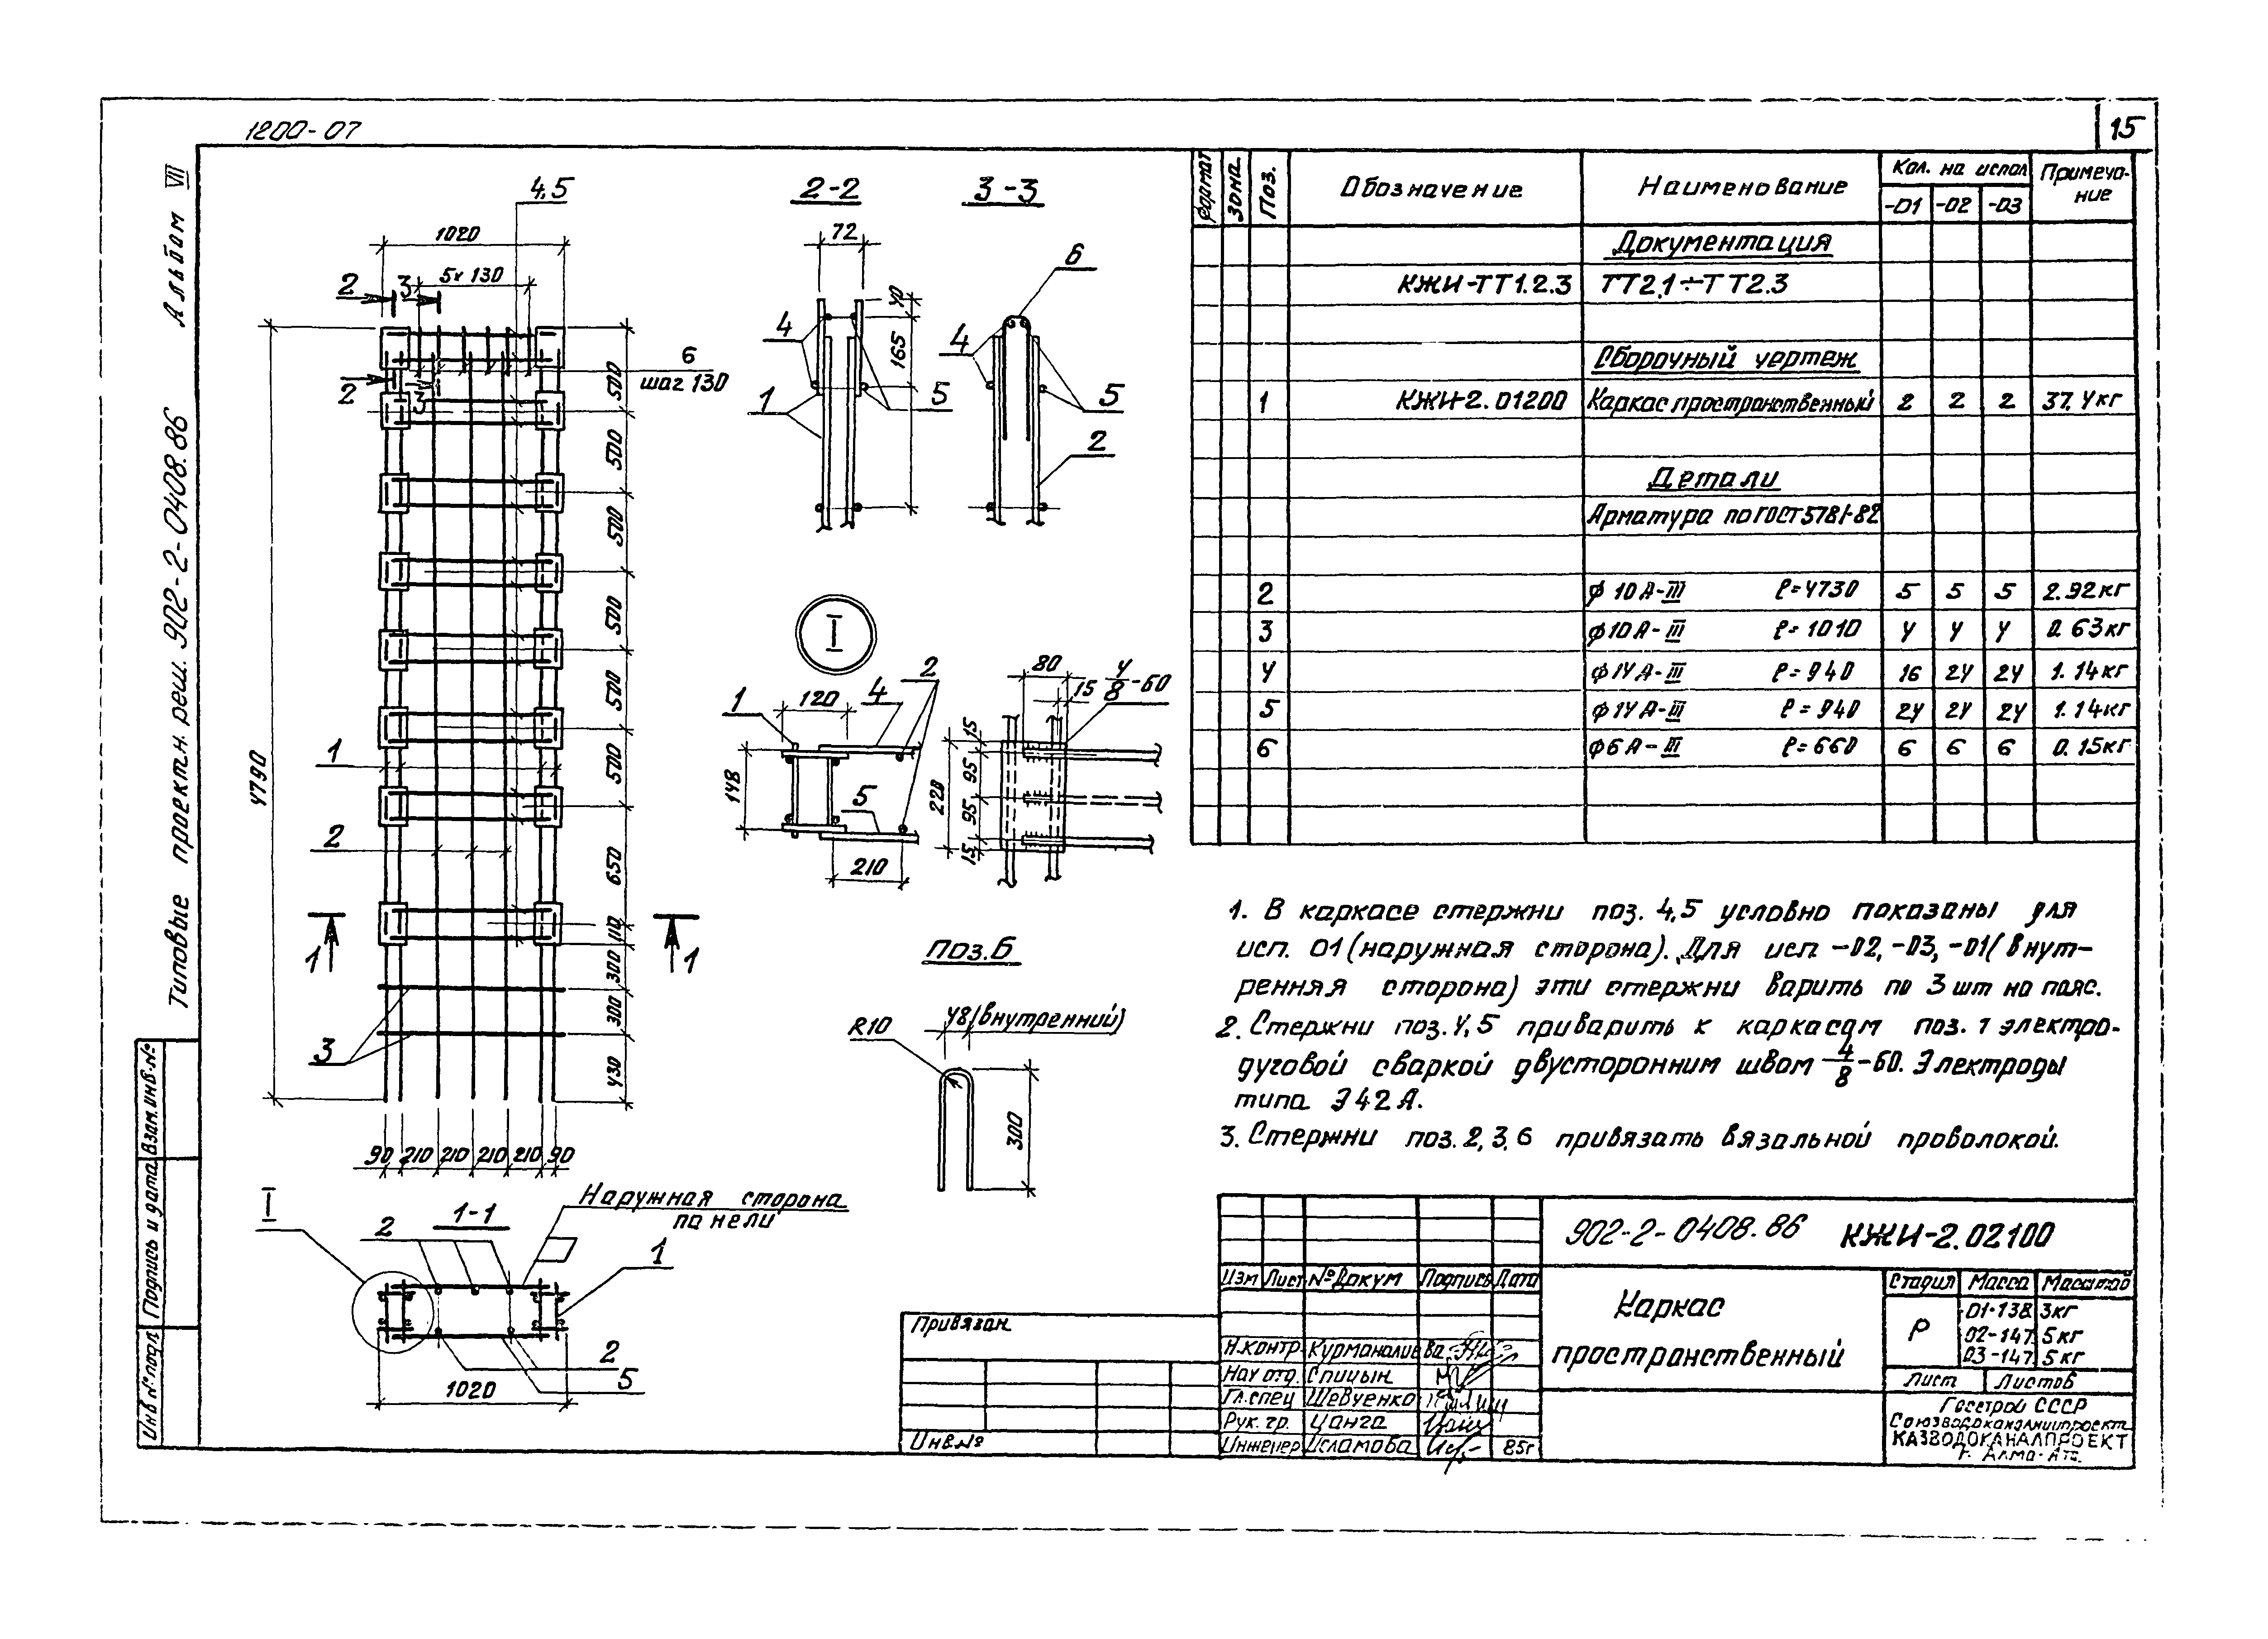 1200-07
15
Альбом VII
Типовые проектн. реш. 902-2-0408.86
Взам.инв.№
Подпись и дата
Инв.№подл.
4,5
1020
5х130
2
3
2
3
6
шаг 130
4790
500
500
500
500
500
500
650
110
300
300
430
1
2
3
1
1
90 210 210 210 210 90
I
1-1
Наружная сторона
панели
2
1
2
5
1020
2-2
72
40
165
4
1
5
3-3
6
4
5
2
I
1
120
4
2
148
5
210
80
15
4/8-60
15
95
220
95
15
поз.6
R10
48(внутренний)
300
Формат
Зона
Поз.
Обозначение
Наименование
Кол. на испол
-01 -02 -03
Примеча-
ние
Документация
КЖИ-ТТ1.2.3 ТТ2.1÷ТТ2.3
Сборочный чертеж
1 КЖИ-2.01200 Каркас пространственный 2 2 2 37.4кг
Детали
Арматура по ГОСТ5781-82
2 ф10А-III ℓ=4730 5 5 5 2.92кг
3 ф10А-III ℓ=1010 4 4 4 0.63кг
4 ф14А-III ℓ=940 16 24 24 1.14кг
5 ф14А-III ℓ=940 24 24 24 1.14кг
6 ф6А-III ℓ=660 6 6 6 0.15кг
1. В каркасе стержни поз. 4,5 условно показаны для
исп. 01(наружная сторона). Для исп -02,-03,-01(внут-
ренняя сторона) эти стержни варить по 3 шт на пояс.
2. Стержни поз.4,5 приварить к каркасам поз. 1 электро-
дуговой сваркой двусторонним швом 4/8-60. Электроды
типа Э42А.
3. Стержни поз.2,3,6 привязать вязальной проволокой.
902-2-0408.86 КЖИ-2.02100
Изм Лист №Докум Подпись Дата
Каркас
пространственный
Стадия Масса Масштаб
Р
01-138.3кг
02-147.5кг
03-147.5кг
Лист Листов
Госстрой СССР
Союзводоканалниипроект
КАЗВОДОКАНАЛПРОЕКТ
г. Алма-Ата.
Н.контр Курманалиева
Нач отд. Спицын
Гл.спец Шевченко
Рук. гр. Цанга
Инженер Исламова 85г
Привязан
Инв.№